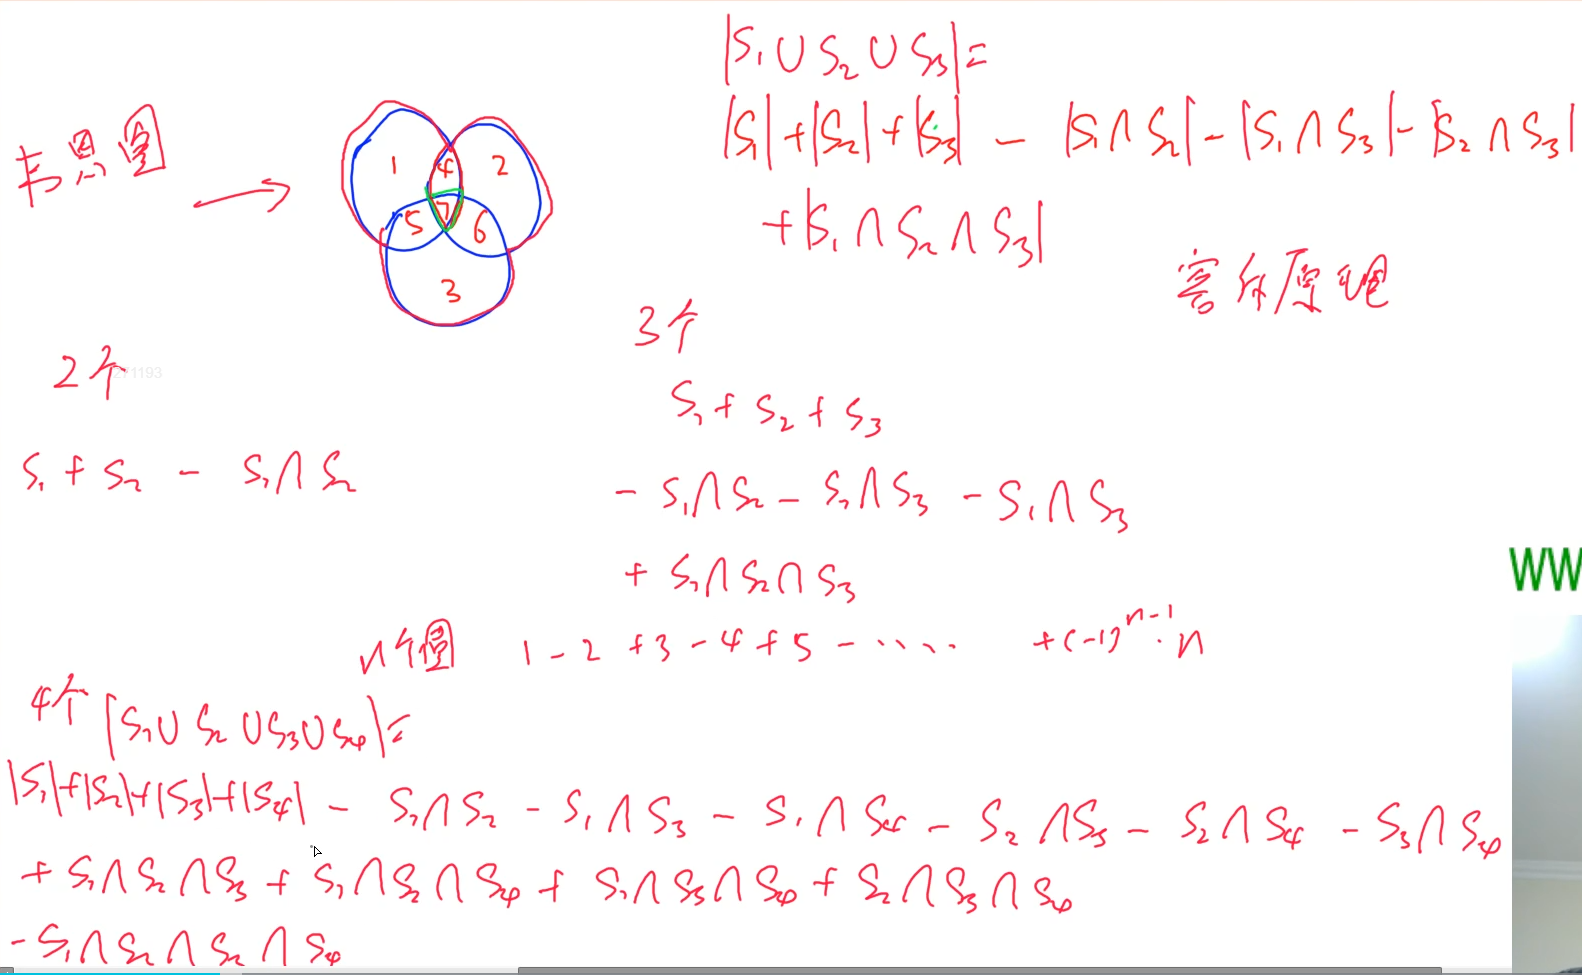 |S₁∪S₂∪S₃|=
|S₁|+|S₂|+|S₃| - |S₁∩S₂| - |S₁∩S₃| - |S₂∩S₃|
+|S₁∩S₂∩S₃|
韦恩图
1 4 2
5 7 6
3
容斥原理
2个
271193
S₁+S₂ - S₁∩S₂
3个
S₁+S₂+S₃
- S₁∩S₂ - S₂∩S₃ - S₁∩S₃
+ S₁∩S₂∩S₃
WW
n个圆 1-2+3-4+5-····· +(-1)ⁿ⁻¹·n
4个 |S₁∪S₂∪S₃∪S₄|=
|S₁|+|S₂|+|S₃|+|S₄| - S₁∩S₂ - S₁∩S₃ - S₁∩S₄ - S₂∩S₃ - S₂∩S₄ - S₃∩S₄
+ S₁∩S₂∩S₃ + S₁∩S₂∩S₄ + S₁∩S₃∩S₄ + S₂∩S₃∩S₄
- S₁∩S₂∩S₂∩S₄